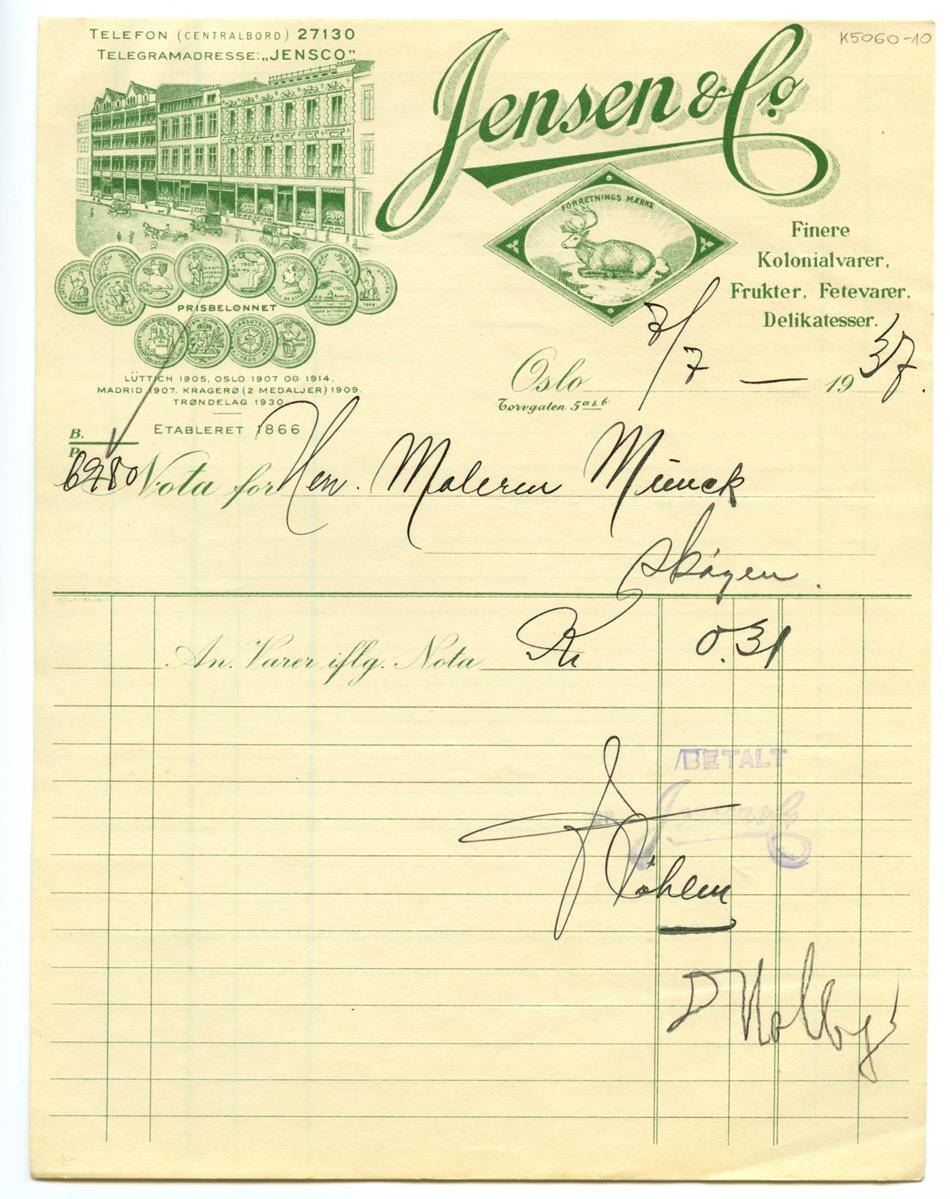 TELEFON (CENTRALBORD) 27130
TELEGRAMADRESSE: „JENSCO”
K5060-10
Jensen & Co.
FORRETNINGS MÆRKE
Finere
Kolonialvarer,
Frukter, Fetevarer,
Delikatesser.
PRISBELØNNET
LÜTTICH 1905, OSLO 1907 OG 1914.
MADRID 1907. KRAGERØ (2 MEDALJER) 1909.
TRØNDELAG 1930
ETABLERET 1866
Oslo 7/7 — 1937.
Torvgaten 5 a & b
B.
P.
6980
Nota for Herr. Maleren Munck
Skøyen.
An. Varer iflg. Nota Kr 0.31
BETALT